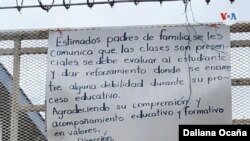 VOA
Estimados padres de familia, se les
comunica que, las clases son presen-
ciales, se debe evaluar al estudiante
y dar reforzamiento donde se encuen
tre alguna debilidad durante su pro-
ceso educativo.
Agradeciendo su comprensión y
acompañamiento educativo y formativo
en valores.
Dirección
Daliana Ocaña